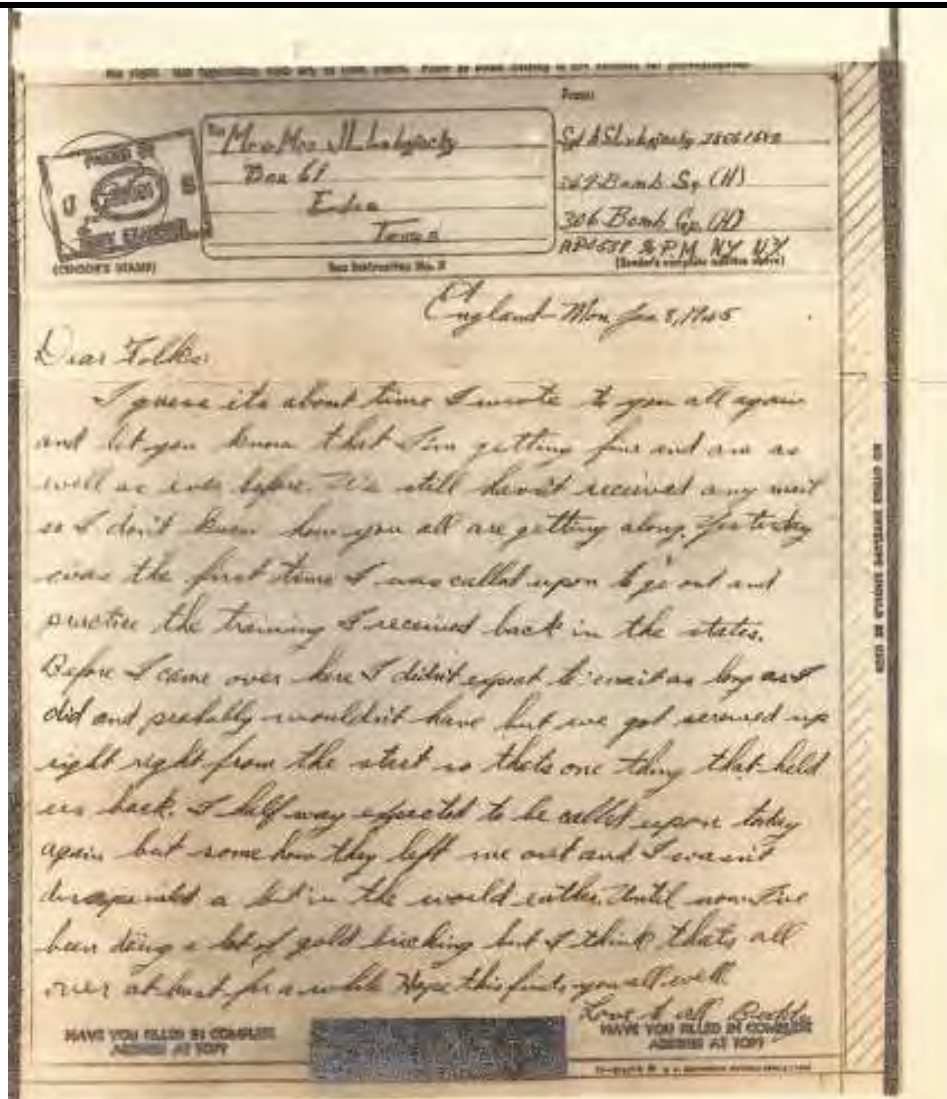 PASSED BY
U S
ARMY EXAMINER
(CENSOR'S STAMP)
To Mr & Mrs J.L.
Box 61
Texas
See Instruction No. 2
From
Sgt
369 Bomb Sq (H)
306 Bomb Gp. (H)
APO 557 % P.M. NY. NY.
(Sender's complete address above)
England Mon Jan 8, 1945
Dear Folks:
I guess its about time I wrote to you all again
and let you know that I'm getting fine and am as
well as ever before. We still haven't received any mail
so I don't know how you all are getting along. Yesterday
was the first time I was called upon to go out and
practice the training I received back in the states.
Before I came over here I didn't expect to wait as long as I
did and probably wouldn't have but we got screwed up
right right from the start so thats one thing that held
us back. I half way expected to be called upon today
again but some how they left me out and I wasn't
a bit in the world either. Until now I've
been doing a lot of gold bricking but I think thats all
over at least for a while Hope this finds you all well.
Love to all
HAVE YOU FILLED IN COMPLETE
ADDRESS AT TOP?
HAVE YOU FILLED IN COMPLETE
ADDRESS AT TOP?